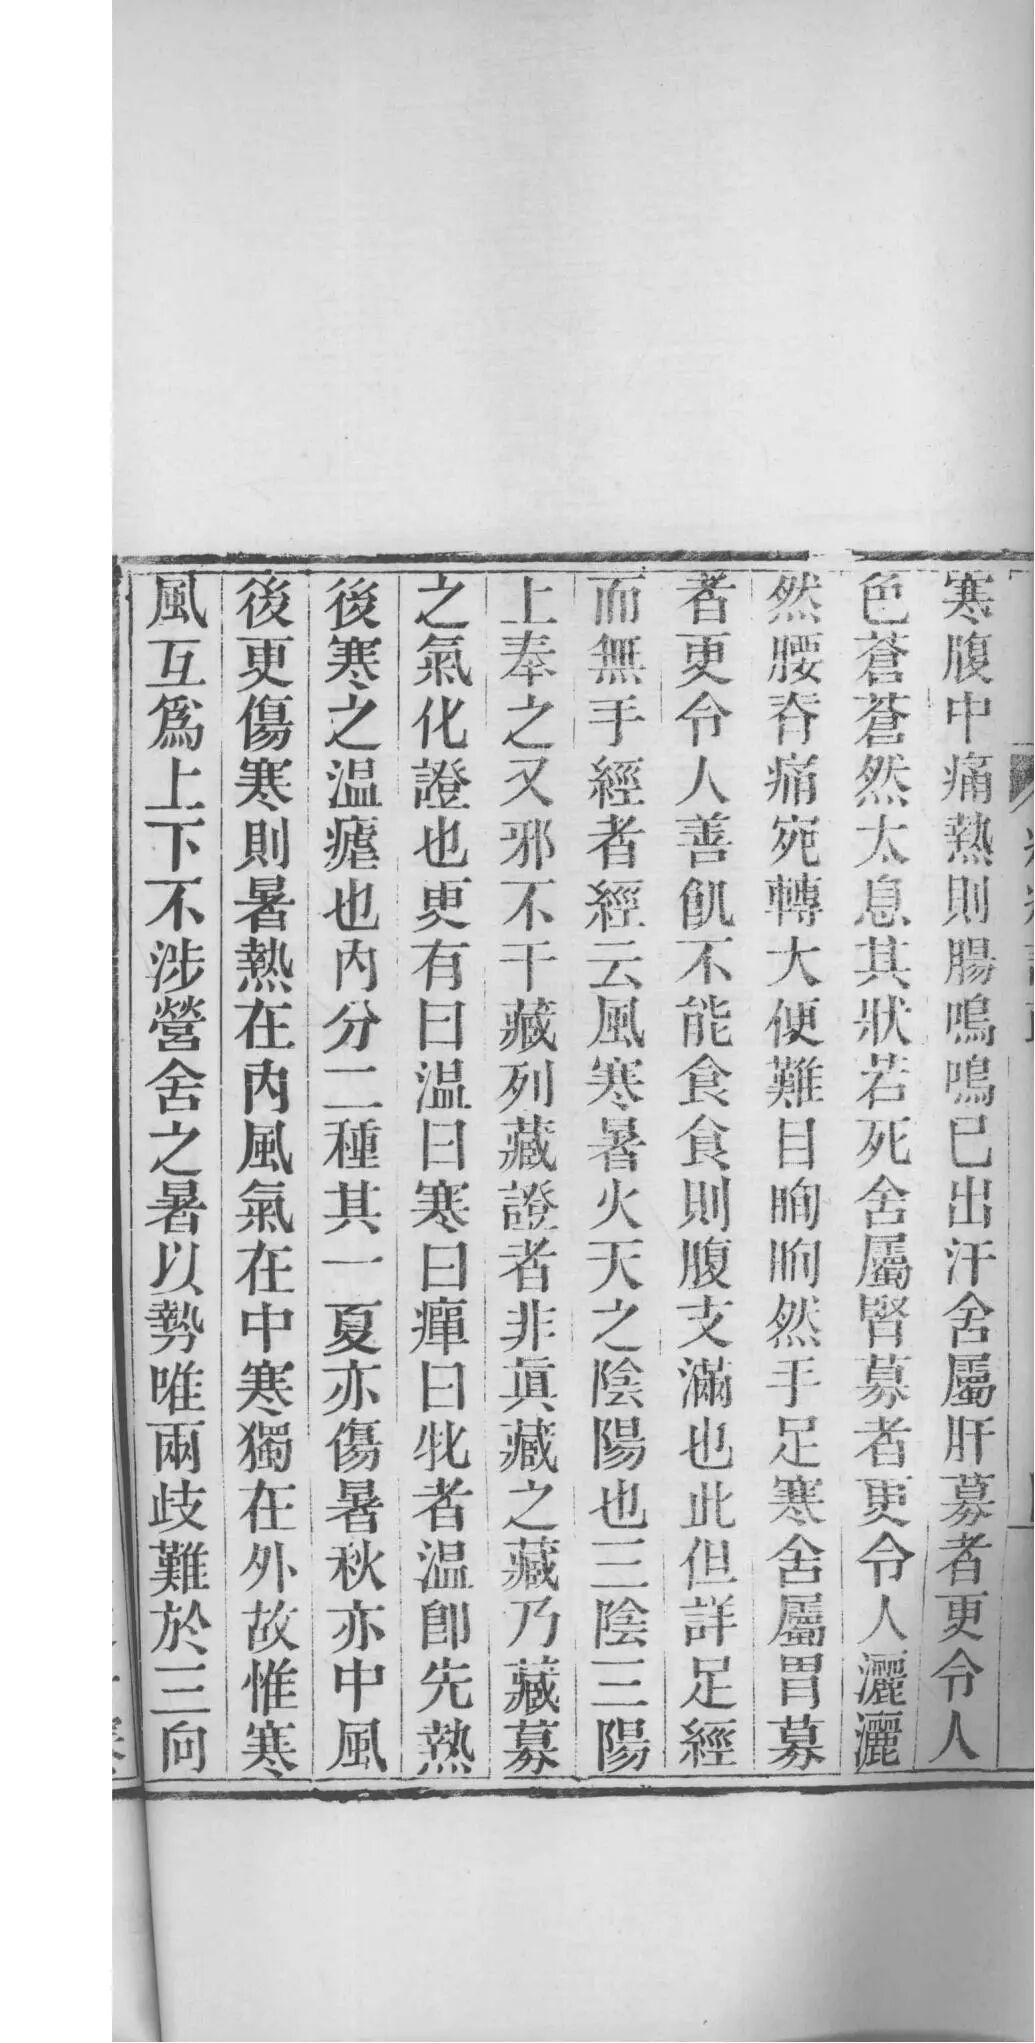 寒腹中痛熱則腸鳴鳴已出汗舍屬肝募者更令人
色蒼蒼然太息其狀若死舍屬腎募者更令人灑灑
然腰脊痛宛轉大便難目眴眴然手足寒舍屬胃募
者更令人善飢不能食食則腹支滿也此但詳足經
而無手經者經云風寒暑火天之陰陽也三陰三陽
上奉之又邪不干藏列藏證者非眞藏之藏乃藏募
之氣化證也更有曰温曰寒曰癉曰牝者温卽先熱
後寒之温瘧也內分二種其一夏亦傷暑秋亦中風
後更傷寒則暑熱在內風氣在中寒獨在外故惟寒
風互爲上下不涉營舍之暑以勢唯兩歧難於三向